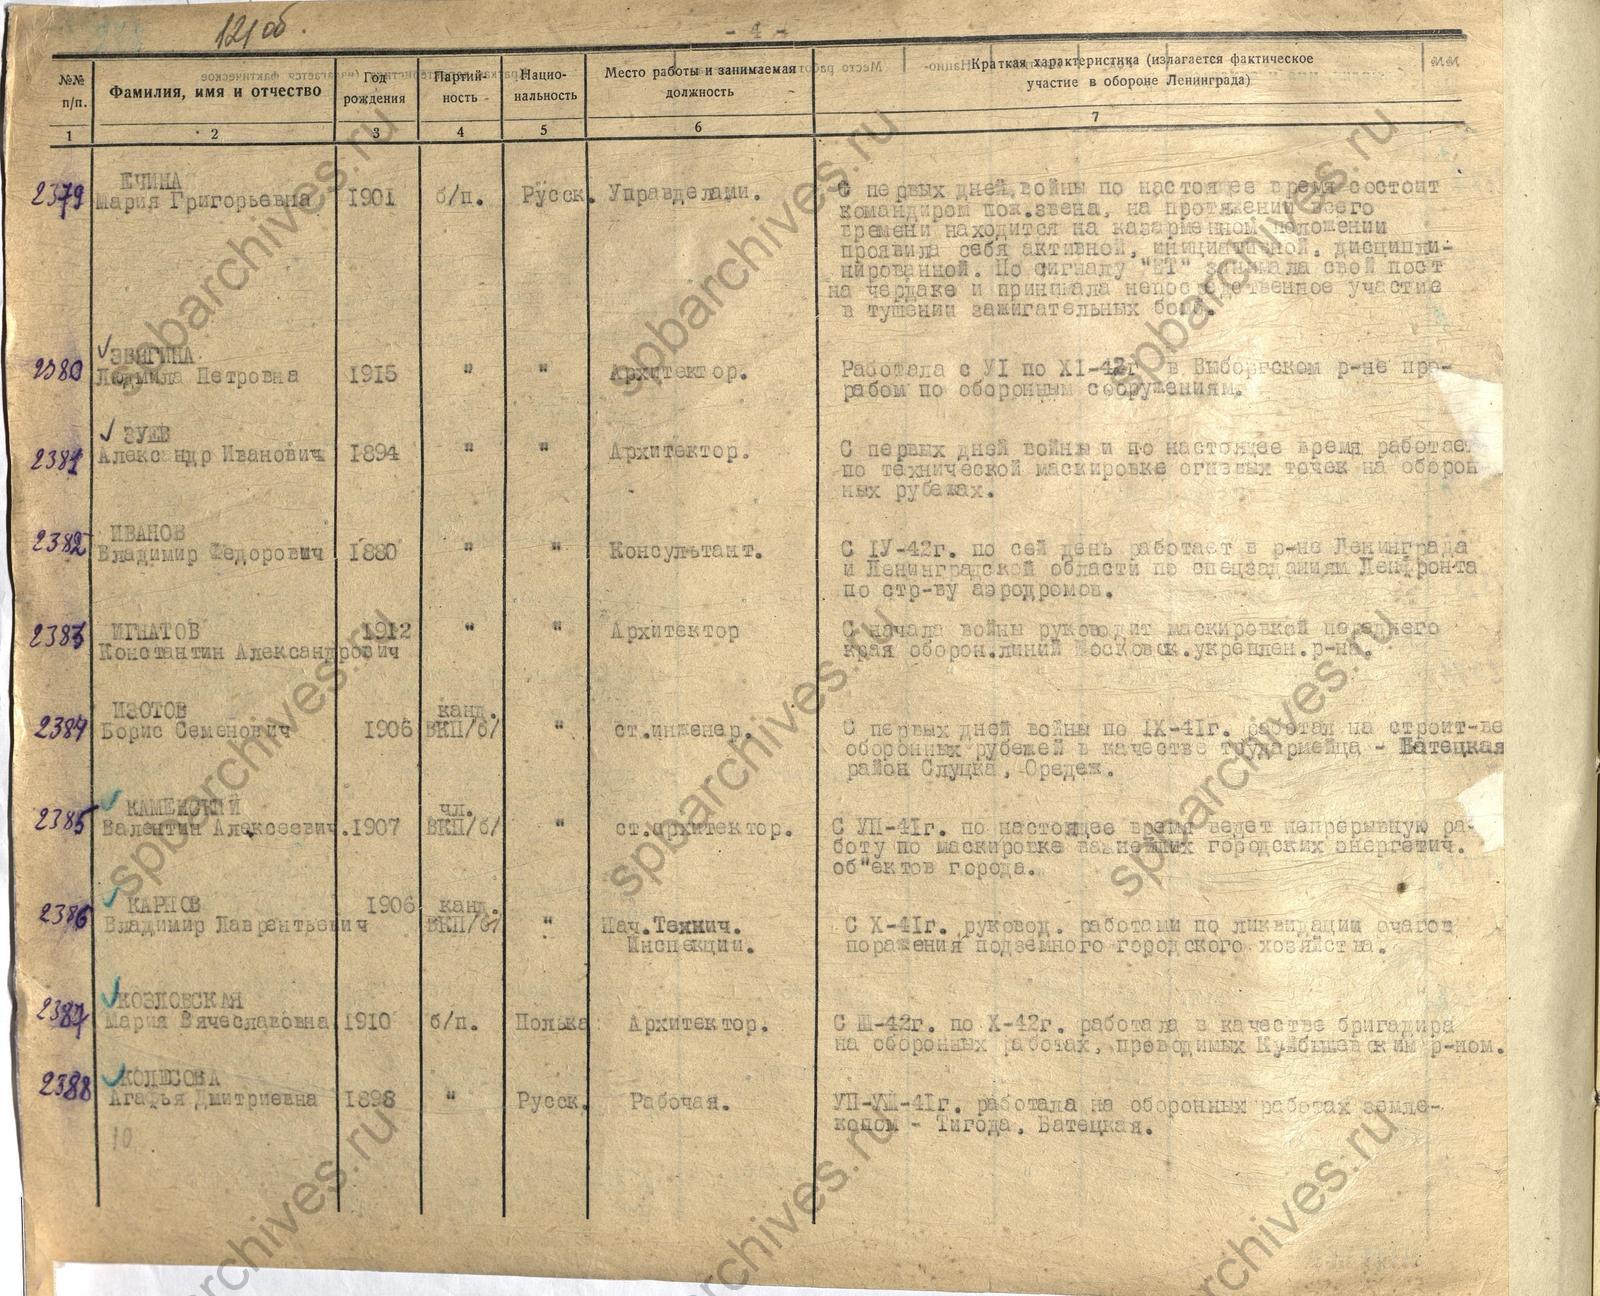 121 об.
- 4 -
№№ п/п.
Фамилия, имя и отчество
Год рождения
Партий-
ность
Нацио-
нальность
Место работы и занимаемая
должность
Краткая характеристика (излагается фактическое
участие в обороне Ленинграда)
1 2 3 4 5 6 7
2379
ЕЧИНА
Мария Григорьевна 1901 б/п. Русск. Управделами.
С первых дней войны по настоящее время состоит
командиром пож.звена, на протяжении всего
времени находится на казарменном положении
проявила себя активной, инициативной, дисципли-
нированной. По сигналу "ВТ" занимала свой пост
на чердаке и принимала непосредственное участие
в тушении зажигательных бомб.
2380
ЗВЯГИНА
Людмила Петровна 1915 " " Архитектор.
Работала с УI по XI-42г. в Выборгском р-не про-
рабом по оборонным сооружениям.
2381
ЗУЕВ
Александр Иванович 1894 " " Архитектор.
С первых дней войны и по настоящее время работает
по технической маскировке огневых точек на оборон
ных рубежах.
2382
ИВАНОВ
Владимир Федорович 1880 " " Консультант.
С IУ-42г. по сей день работает в р-не Ленинграда
и Ленинградской области по спецзаданиям Ленфронта
по стр-ву аэродромов.
2383
ИГНАТОВ 1912 " " Архитектор
Константин Александрович
С начала войны руководит маскировкой переднего
края оборон.линий Московск.укреплен.р-на.
2384
ИЗОТОВ
Борис Семенович 1906 канд.
ВКП/б/ " ст.инженер.
С первых дней войны по IX-41г. работал на строит-ве
оборонных рубежей в качестве трудармейца - Батецкая
район Слуцка, Оредеж.
2385
КАМЕНСКИЙ
Валентин Алексеевич. 1907 чл.
ВКП/б/ " ст.архитектор.
С УП-41г. по настоящее время ведет непрерывную ра-
боту по маскировке важнейших городских энергетич.
об"ектов города.
2386
КАРПОВ 1906 канд.
Владимир Лаврентьевич ВКП/б/ " Нач.Технич.
Инспекции.
С X-41г. руковод. работами по ликвидации очагов
поражения подземного городского хозяйства.
2387
КОЗЛОВСКАЯ
Мария Вячеславовна 1910 б/п. Полька Архитектор.
С Ш-42г. по X-42г. работала в качестве бригадира
на оборонных работах, проводимых Куйбышевским р-ном.
2388
КОЛЕСОВА
Агафья Дмитриевна 1898 " Русск. Рабочая.
УП-УШ-41г. работала на оборонных работах земле-
копом - Тигода, Батецкая.
10
spbarchives.ru
spbarchives.ru
spbarchives.ru
spbarchives.ru
spbarchives.ru
spbarchives.ru
spbarchives.ru
spbarchives.ru
spbarchives.ru